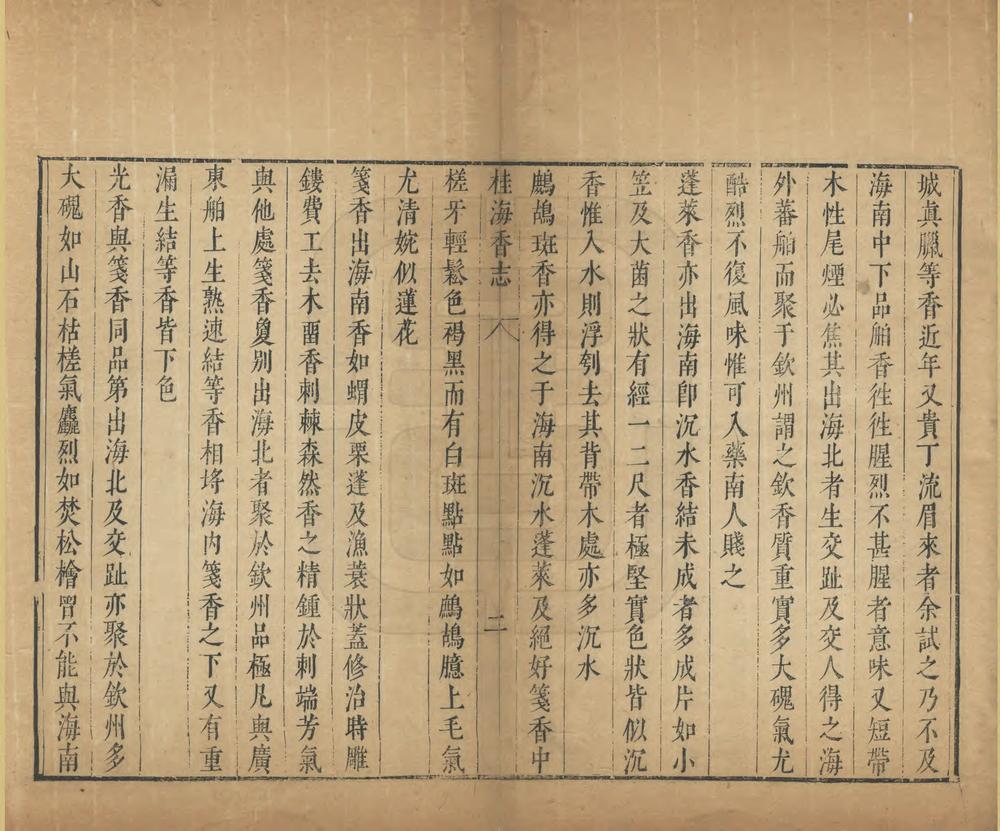 城真臘等香近年又貴丁流眉來者余試之乃不及
海南中下品舶香徃徃腥烈不甚腥者意味又短帶
木性尾煙必焦其出海北者生交趾及交人得之海
外蕃舶而聚于欽州謂之欽香質重實多大磈氣尤
酷烈不復風味惟可入藥南人賤之
蓬萊香亦出海南卽沉水香結未成者多成片如小
笠及大菌之狀有經一二尺者極堅實色狀皆似沉
香惟入水則浮刳去其背帶木處亦多沉水
鷓鴣斑香亦得之于海南沉水蓬萊及絕好箋香中
桂海香志
二
槎牙輕鬆色褐黑而有白斑點點如鷓鴣臆上毛氣
尤清婉似蓮花
箋香出海南香如蝟皮栗蓬及漁蓑狀蓋修治時雕
鏤費工去木畱香刺棘森然香之精鍾於刺端芳氣
與他處箋香夐别出海北者聚於欽州品極凡與廣
東舶上生熟速結等香相埒海内箋香之下又有重
漏生結等香皆下色
光香與箋香同品第出海北及交趾亦聚於欽州多
大磈如山石枯槎氣麤烈如焚松檜曾不能與海南